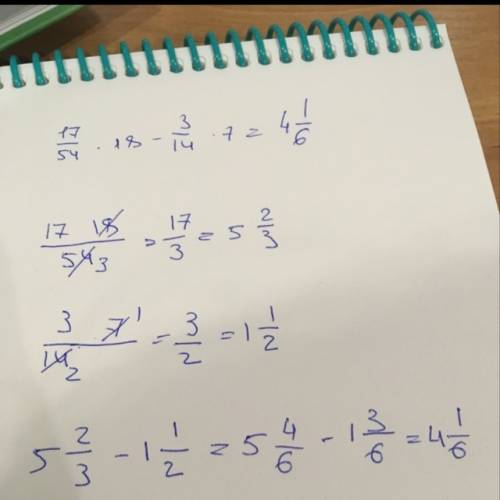 17/54 · 18 − 3/14 · 7 = 4 1/6
17 18/54 3 = 17/3 = 5 2/3
3 · 7 1/14 2 = 3/2 = 1 1/2
5 2/3 − 1 1/2 = 5 4/6 − 1 3/6 = 4 1/6